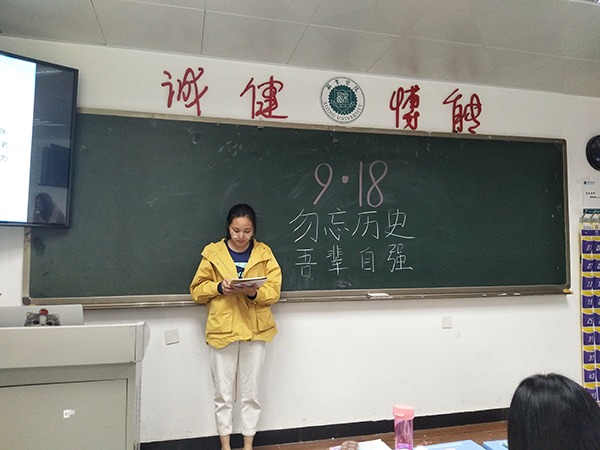 诚 健 博 能
UNIVERSITY
9·18
勿忘历史
吾辈自强